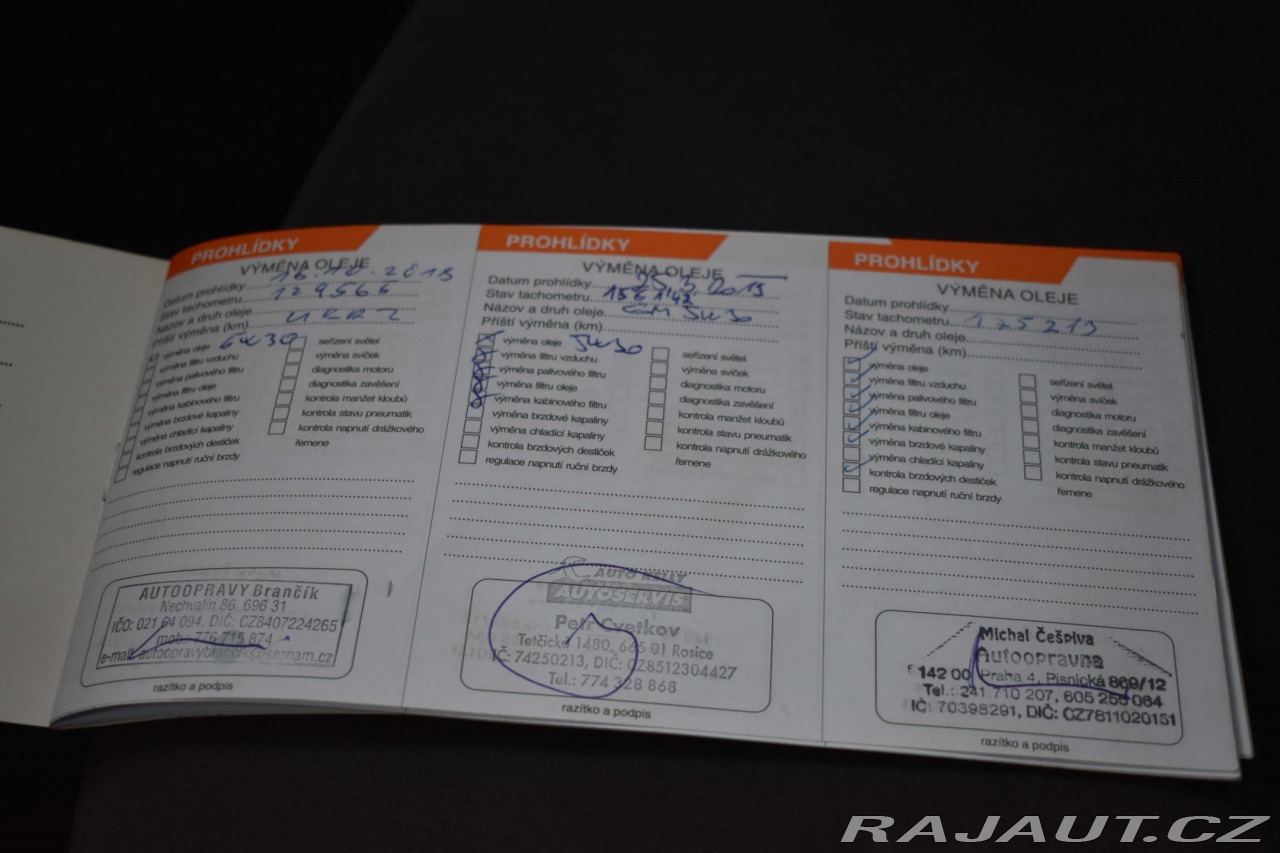 PROHLÍDKY
VÝMĚNA OLEJE
Datum prohlídky
Stav tachometru
Názov a druh oleje
Příští výměna (km)
5W30
výměna oleje
výměna filtru vzduchu
výměna palivového filtru
výměna filtru oleje
výměna kabinového filtru
výměna brzdové kapaliny
výměna chladící kapaliny
kontrola brzdových destiček
regulace napnutí ruční brzdy
seřízení světel
výměna svíček
diagnostika motoru
diagnostika zavěšení
kontrola manžet kloubů
kontrola stavu pneumatik
kontrola napnutí drážkového
řemene
AUTOOPRAVY Brančík
Nechvalín 86, 696 31
IČO: 021 04 094, DIČ: CZ8407224265
mob.: 776 715 874
e-mail: autoopravybrancik@seznam.cz
razítko a podpis
PROHLÍDKY
VÝMĚNA OLEJE
Datum prohlídky 25.3.2019
Stav tachometru 156143
Názov a druh oleje GM 5W30
Příští výměna (km)
výměna oleje 5W30
výměna filtru vzduchu
výměna palivového filtru
výměna filtru oleje
výměna kabinového filtru
výměna brzdové kapaliny
výměna chladící kapaliny
kontrola brzdových destiček
regulace napnutí ruční brzdy
seřízení světel
výměna svíček
diagnostika motoru
diagnostika zavěšení
kontrola manžet kloubů
kontrola stavu pneumatik
kontrola napnutí drážkového
řemene
AUTO KELLY
AUTOSERVIS
Petr Cvetkov
Tetčická 1480, 665 01 Rosice
IČ: 74250213, DIČ: CZ8512304427
Tel.: 774 328 868
razítko a podpis
PROHLÍDKY
VÝMĚNA OLEJE
Datum prohlídky
Stav tachometru 175213
Názov a druh oleje
Příští výměna (km)
výměna oleje
výměna filtru vzduchu
výměna palivového filtru
výměna filtru oleje
výměna kabinového filtru
výměna brzdové kapaliny
výměna chladící kapaliny
kontrola brzdových destiček
regulace napnutí ruční brzdy
seřízení světel
výměna svíček
diagnostika motoru
diagnostika zavěšení
kontrola manžet kloubů
kontrola stavu pneumatik
kontrola napnutí drážkového
řemene
Michal Češpiva
Autoopravna
142 00 Praha 4, Písnická 869/12
Tel.: 241 710 207, 605 256 064
IČ: 70398291, DIČ: CZ7811020151
razítko a podpis
RAJAUT.CZ